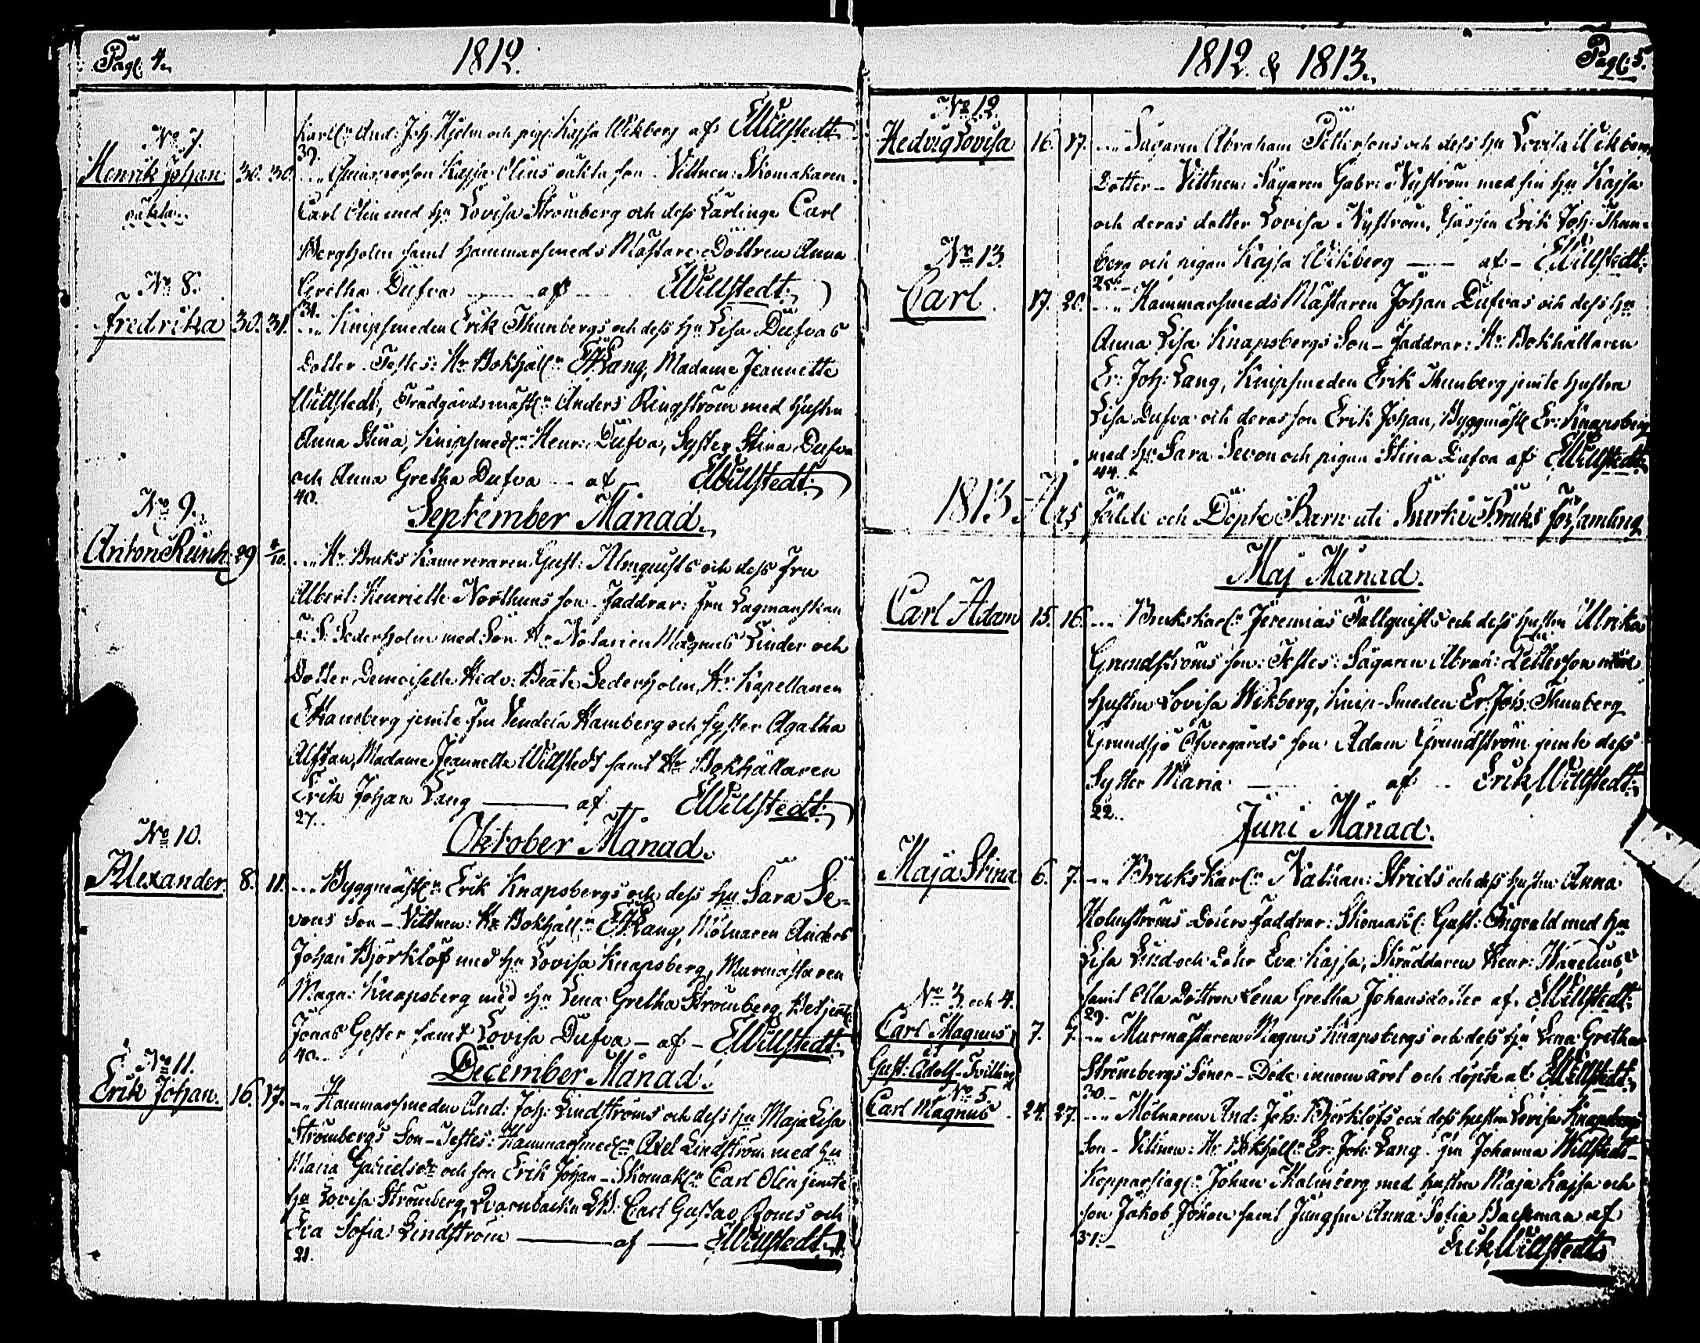 Pag: 4.
1812.
Karlen And: Joh: Hjelm och pig: Kajsa Wikberg af EWillstedt
No 7.
Henrik Johan
oäkta
30. 30.
39.
Qvinsperson Kajsa Olins oäkta son - Vittnen: Skomakaren
Carl Olin med hu Lovisa Stromberg och dess Lärlinge Carl
Bergholm samt Hammarsmeds Mästare Döttren Anna
Gretha Dufva af EWillstedt
No 8.
Fredrika
30. 31.
31.
Knipsmeden Erik Thunbergs och dess hu Lisa Dufvas
Dotter. Testes: Hr Bokhåll: EJLang, Madame Jeannette
Willstedt, Trädgårdsmäst: Anders Ringström med hustru
Anna Stina, Knipsmed: Henr: Dufva, Syster Stina Dufva
och Anna Gretha Dufva af EWillstedt
40.
September Månad.
No 9.
Anton Reinh:
29 2/10
Hr Bruks Kamereraren Gust: Almquists och dess Fru
Albert: Henriette Northuns son - Faddrar: Fru Lagmanskan
Sederholm med Son Hr Notarien Magnus Linder och
Dotter Demoiselle Hedv: Beata Sederholm, Hr Kapellanen
Hamberg jemte Fru Vendela Hamberg och Syster Agatha
Alftan, Madame Jeannette Willstedt samt Hr Bokhållaren
Erik Johan Lang af EWillstedt
27.
Oktober Månad.
No 10.
Alexander
8. 11.
Byggmäst: Erik Knapsbergs och dess hu Sara Se-
vons Son - Vittnen: Hr Bokhåll: EJLang, Mölnaren Anders
Johan Björklöf med hu Lovisa Knapsberg, Murmästaren
Magn: Knapsberg med hu Lena Gretha Stromberg, Betjent:
Jonas Gester samt Lovisa Dufva - af - EWillstedt
40.
December Månad.
No 11.
Erik Johan.
16. 17.
Hammarsmeden And: Joh: Lindströms och dess hu Maja Lisa
Strombergs Son - Testes: Hammarsmed: Axel Lindström med hu
Maria Gabrielsdr och son Erik Johan - Skomak: Carl Olin jemte
hu Lovisa Stromberg, Carl Gustav Roms och
Eva Sofia Lindström af EWillstedt
21.
1812. & 1813.
Pag: 5.
No 12.
Hedvig Lovisa
16. 17.
Sågaren Abraham Pettersons och dess hu Lovisa Wikbergs
Dotter - Vittnen: Sågaren Gabr: Nyström med sin hu Kajsa
och deras dotter Lovisa Nyström, Erik Joh: Thun-
berg och pigan Kajsa Wikberg af - EWillstedt
No 13.
Carl
17. 20.
25.
Hammarsmeds Mästaren Johan Dufvas och dess hu
Anna Lisa Knapsbergs Son - Faddrar: Hr Bokhållaren
Er: Joh: Lang, Knipsmeden Erik Thunberg jemte hustru
Lisa Dufva och deras son Erik Johan, Byggmäst: Er: Knapsberg
med hu Sara Sevon och pigan Stina Dufva af EWillstedt
44.
1813 Års Födde och Döpte Barn uti Svartå Bruks församling
Maj Månad.
Carl Adam
15. 16.
Brukskarl: Jeremias Tallquists och dess hustru Ulrika
Grundströms son: Testes: Sågaren Abrah: Petterson med
hustru Lovisa Wikberg, Knip-Smeden Er: Joh: Thunberg
Grundsjö Öfvergårds son Adam Grundström jemte dess
Syster Maria af Erik Willstedt
22.
Juni Månad.
Maja Stina
6. 7.
Brukskarl: Nathan: Strids och dess hustru Anna
Holmströms Dotter Faddrar: Skomak: Gust: Engvald med hu
Lisa Lind och Dotter Eva Kajsa, Skräddaren Henr:
samt Olla Dottren Lena Gretha Johansdotter af. EWillstedt
No 3 och 4.
Carl Magnus
Gust: Adolf. Tvilling
7. 7.
29.
Murmästaren Magnus Knapsbergs och dess hu Lena Gretha
Strombergs Söner - Döde innom året och döpte af EWillstedt
No 5.
Carl Magnus
24. 27.
30.
Mölnaren And: Joh: Björklöfs och dess hustru Lovisa Knapsbergs
Son - Vittnen: Hr Bokhåll: Er: Joh: Lang - fru Johanna Willstedt -
Kopparslag: Johan Malmberg med hustru Maja Kajsa och
son Jakob Johan samt Jungfru Anna Sofia Backman af
31.
Erik Willstedt